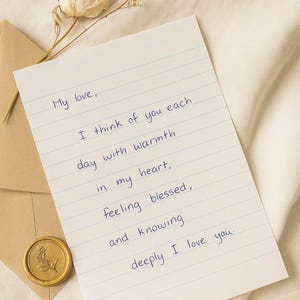 My love,
I think of you each
day with warmth
in my heart,
feeling blessed,
and knowing
deeply I love you.